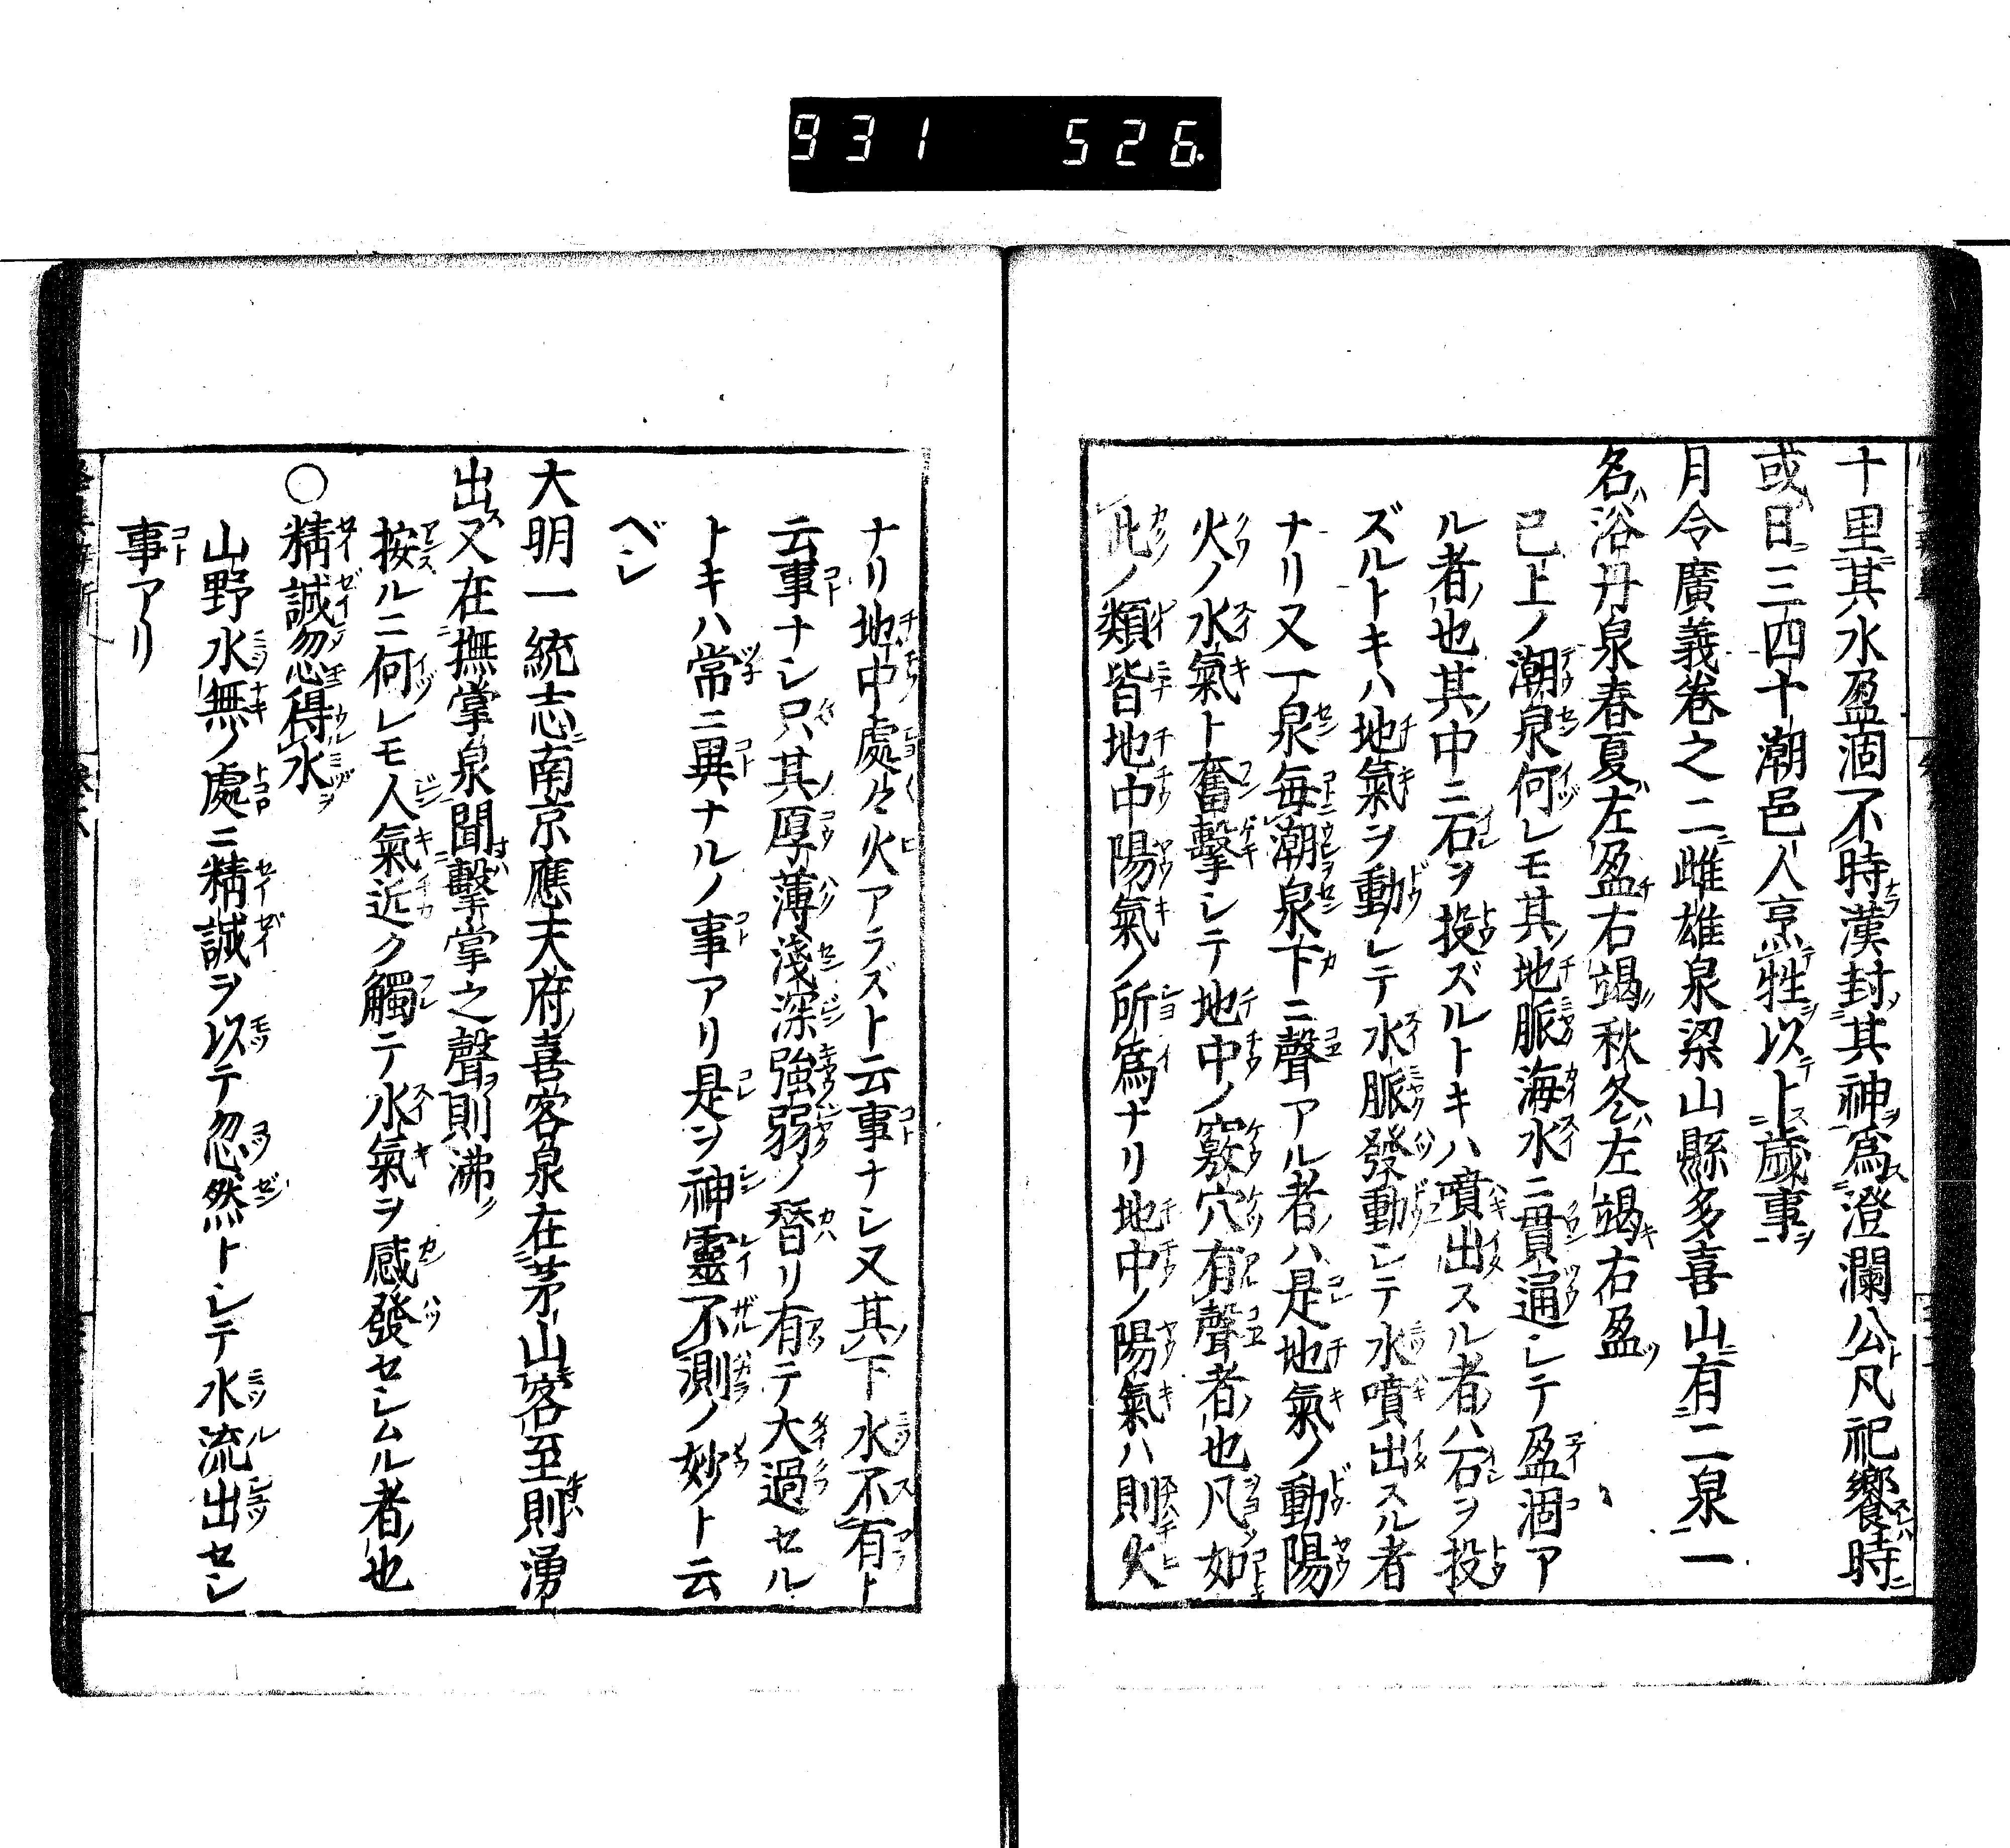 931 526
十里其水盈涸不時漢封其神爲澄瀾公凡祀饗時
或日三四十潮邑人烹牲以テ卜歳事
月令廣義巻之二雌雄泉梁山縣多喜山有二泉一
名浴丹泉春夏左盈右竭秋冬左竭右盈
已上ノ潮泉何レモ其地脈海水ニ貫通シテ盈涸ア
ル者也其中ニ石ヲ投ズルトキハ噴出スル者ハ石ヲ投
ズルトキハ地氣ヲ動シテ水脈發動シテ水噴出スル者
ナリ又一泉毎潮泉下ニ聲アル者ハ是地氣ノ動陽
火ノ水氣ト奮擊シテ地中ノ竅穴有聲者也凡如
此ノ類皆地中陽氣ノ所爲ナリ地中ノ陽氣ハ則火
ナリ地中處々火アラズト云事ナシ又其下水不有ト
云事ナシ只其厚薄淺深強弱ノ替リ有テ大過セル
トキハ常ニ異ナルノ事アリ是ヲ神靈不測ノ妙ト云
ベシ
大明一統志南京應天府喜客泉在茅山客至則湧
出又在撫掌泉聞擊掌之聲則沸
按ルニ何レモ人氣近ク觸テ水氣ヲ感發セシムル者也
○精誠忽得水
山野水無ノ處ニ精誠ヲ以テ忽然トシテ水流出セシ
事アリ